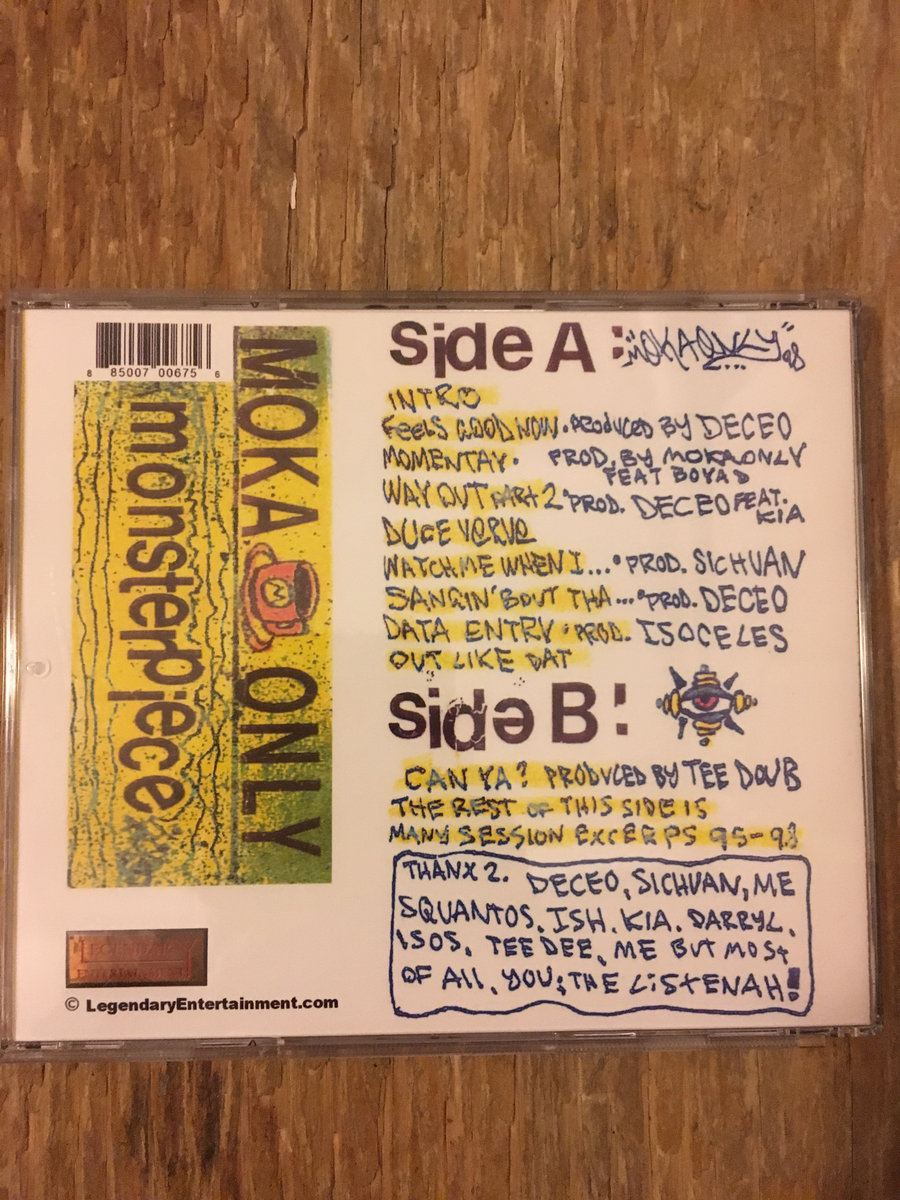 8 85007 00675 6
MOKA ONLY
monsterpiece
Side A:
"MOKAONLY" 98
INTRO
FEELS GOOD NOW • PRODUCED BY DECEO
MOMENTAY • PROD. BY MOKAONLY
FEAT BOYAD
WAY OUT PART 2 • PROD. DECEO FEAT.
KIA
DUCE VERVE
WATCH ME WHEN I... • PROD. SICHUAN
SANGIN' BOUT THA... • PROD. DECEO
DATA ENTRY • PROD. ISOCELES
OUT LIKE DAT
Side B:
CAN YA? PRODUCED BY TEE DOUB
THE REST OF THIS SIDE IS
MANY SESSION EXCERPS 95-98
THANX 2. DECEO, SICHUAN, ME
SQUANTOS, ISH. KIA. DARRYL.
ISOS. TEE DEE, ME BUT MOST
OF All, YOU; THE LiSTENAH!
LEGENDARY
ENTERTAINMENT
© LegendaryEntertainment.com